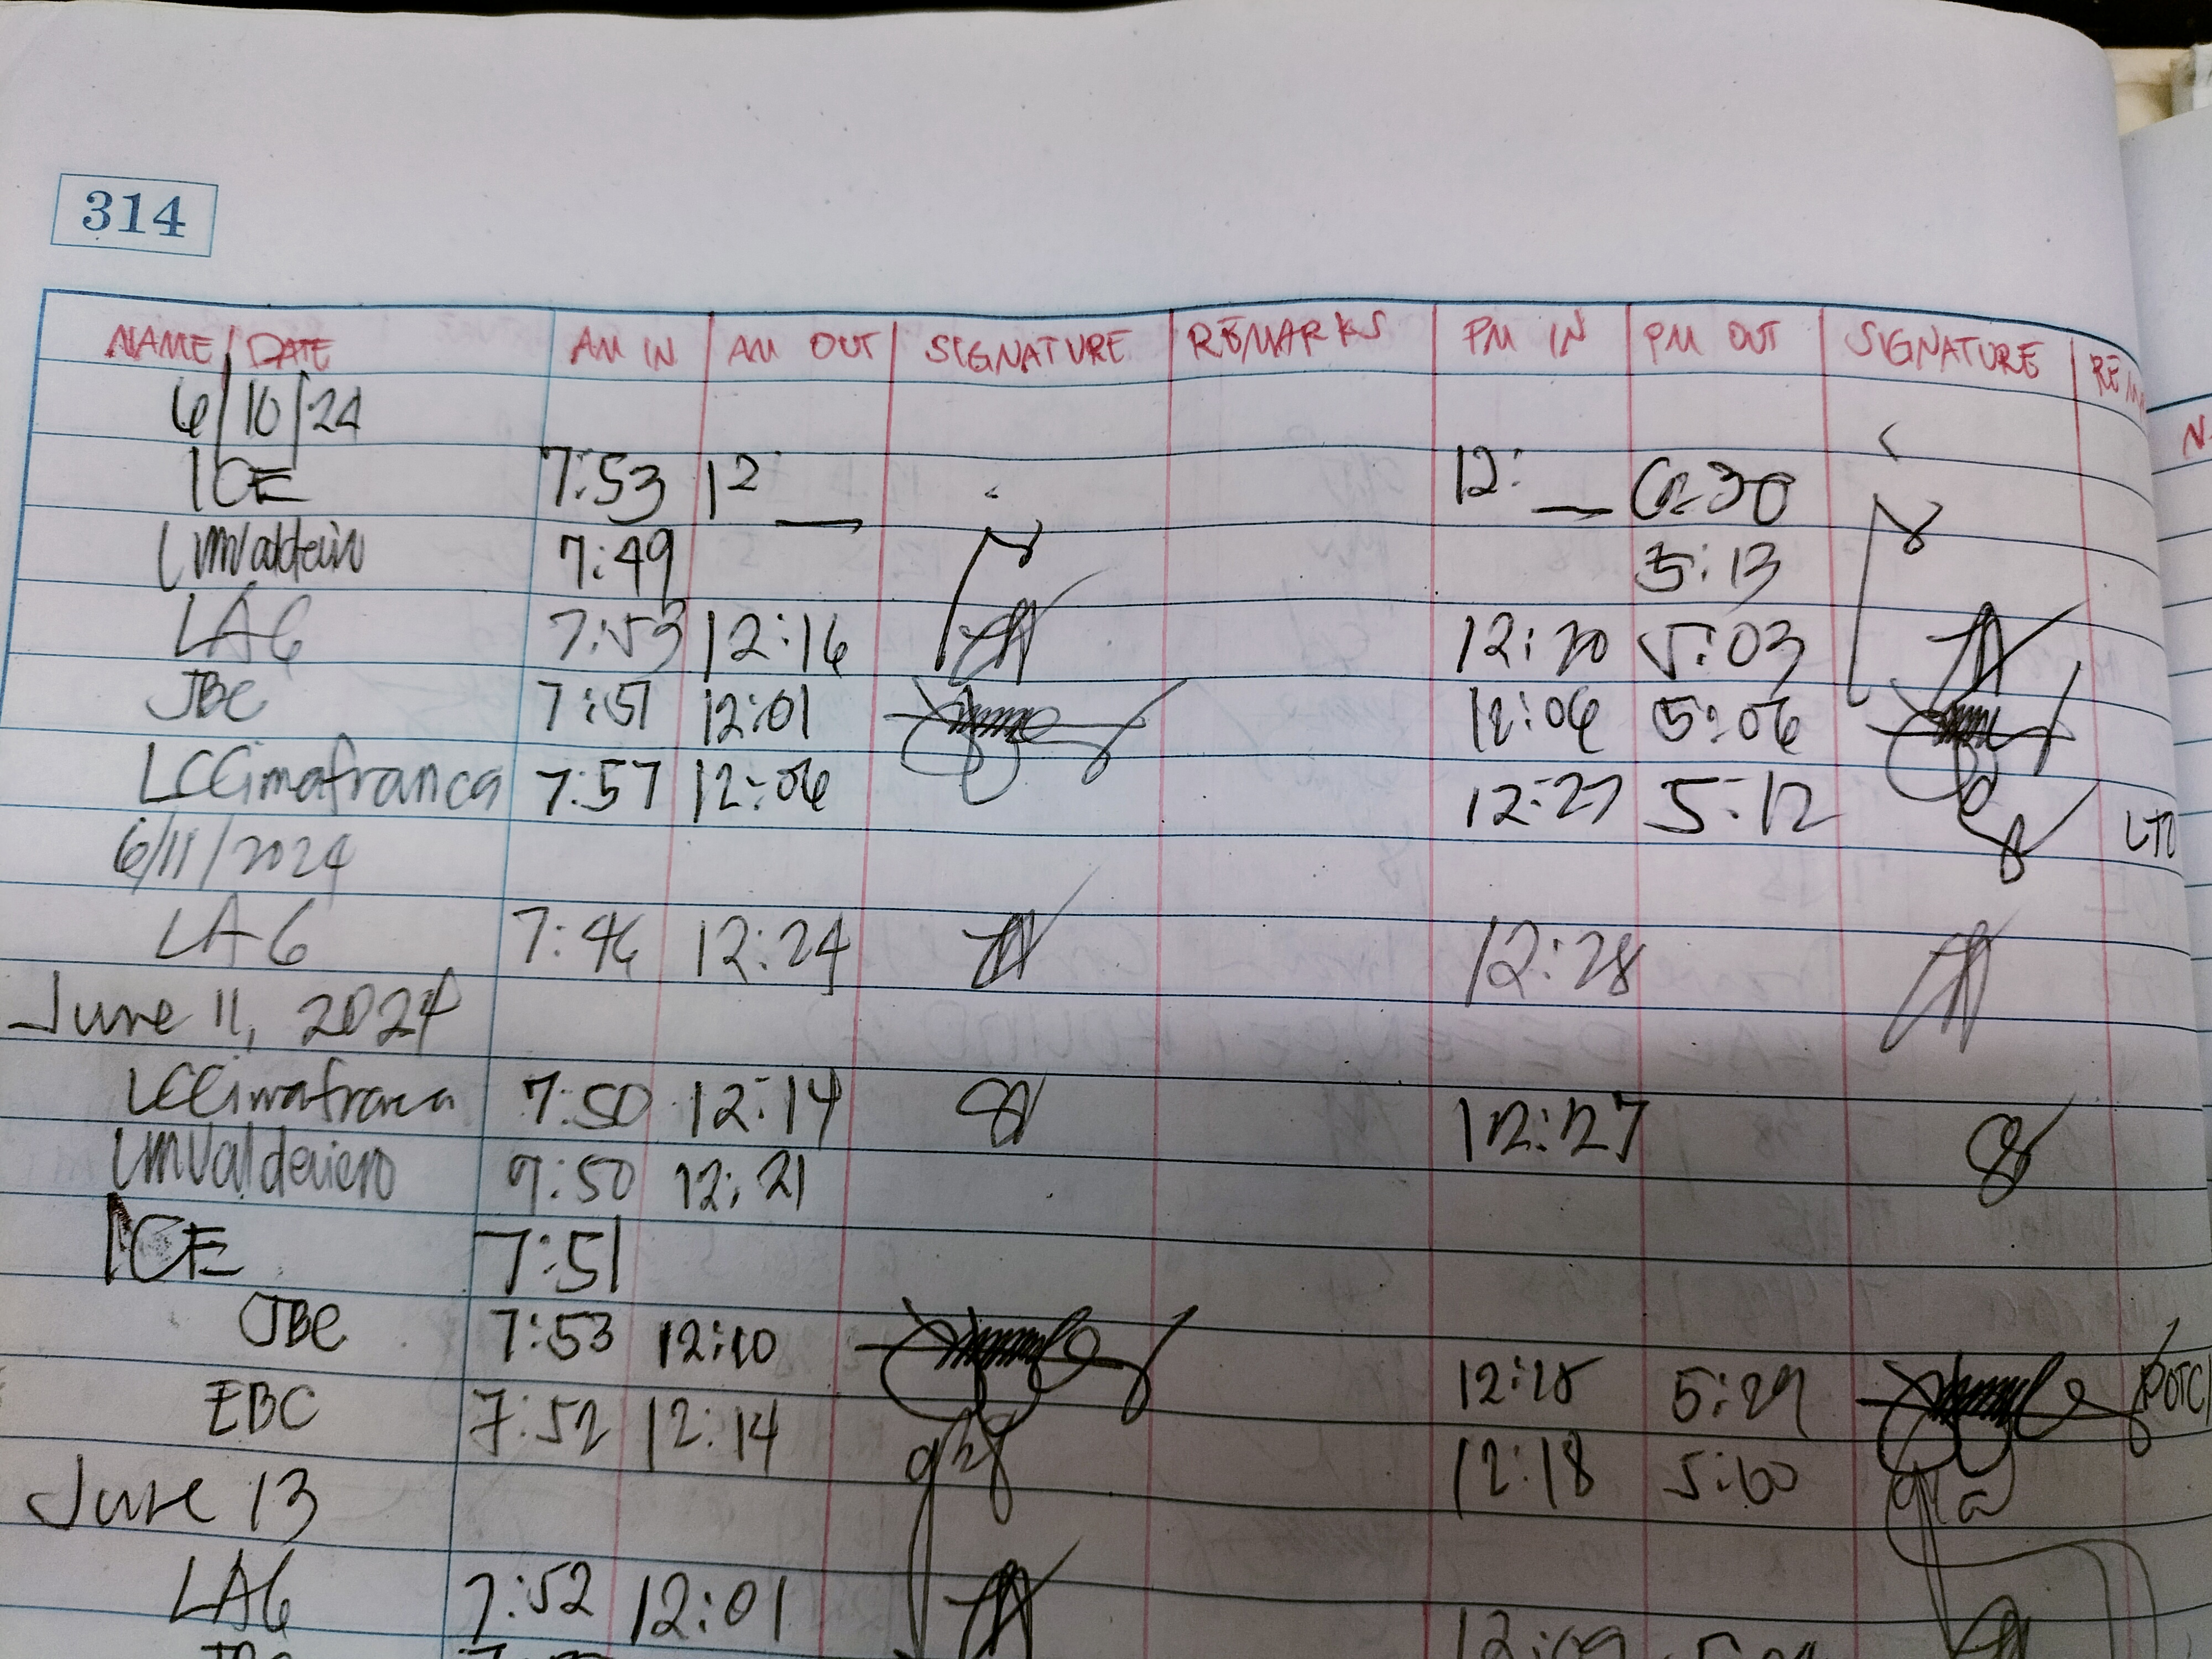 314
NAME/DATE AM IN AM OUT SIGNATURE REMARKS PM IN PM OUT SIGNATURE
6/10/24
ICE 7:53 12 12: 6:30
LMValdeviero 7:49 5:13
LAG 7:53 12:16 12:20 5:03
JBC 7:51 12:01 12:06 5:06
LCCimafranca 7:57 12:06 12:27 5:12
6/11/2024
LAG 7:46 12:24 12:28
June 11, 2024
LCCimafranca 7:50 12:14 12:27
LMValdeviero 7:50 12:21
ICE 7:51
JBC 7:53 12:10 5:29
EBC 7:52 12:14 12:18 5:00
June 13
LAG 7:52 12:01